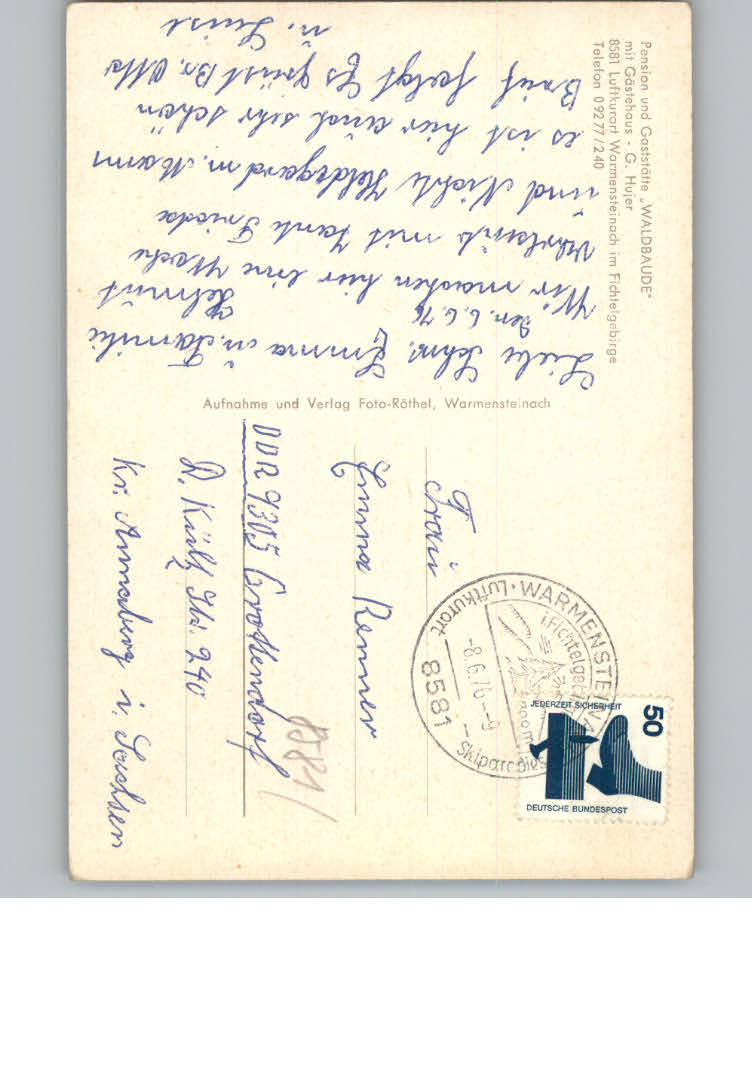 Pension und Gaststätte „WALDBAUDE"
mit Gästehaus - G. Hujer
8581 Luftkurort Warmensteinach im Fichtelgebirge
Telefon 09277/240
Liebe Schw. Emma u. Familie
Helmut
den. 6.6.76
Wir machen hier eine Woche
Urlaub mit Tante Frieda
und Nichte Hildegard m. Mann
es ist hier auch sehr schön
Brief folgt Es grüßt Br. Otto
u. Luise
Aufnahme und Verlag Foto-Röthel, Warmensteinach
Frau
Emma Renner
DDR 9305 Crottendorf
R. Külz Str. 240
Kr. Annaberg i. Sachsen
8581/
Luftkurort · WARMENSTEINACH
i. Fichtelgebirge
-8.6.76--9
8581
Skiparadies
50
JEDERZEIT SICHERHEIT
DEUTSCHE BUNDESPOST